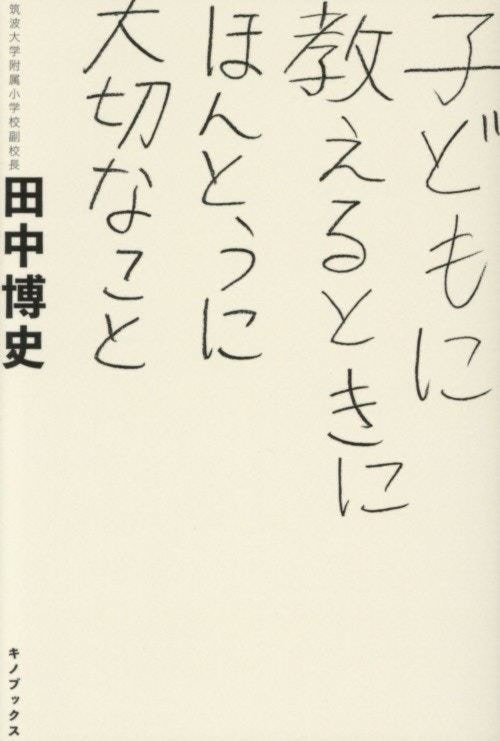 子どもに
教えるときに
ほんとうに
大切なこと
筑波大学附属小学校副校長
田中博史
キノブックス